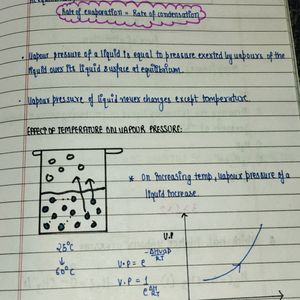 Rate of evaporation = Rate of condensation
• Vapour pressure of a liquid is equal to pressure exerted by vapours of the
liquid over its liquid surface at equilibrium.
• Vapour pressure of liquid never changes except temperature.
EFFECT OF TEMPERATURE ON VAPOUR PRESSURE:
* On increasing temp, vapour pressure of a
liquid increase.
V.P
25°C
↓
60°C
V.P = e^-ΔHvap/RT
V.P = 1/e^ΔH/RT